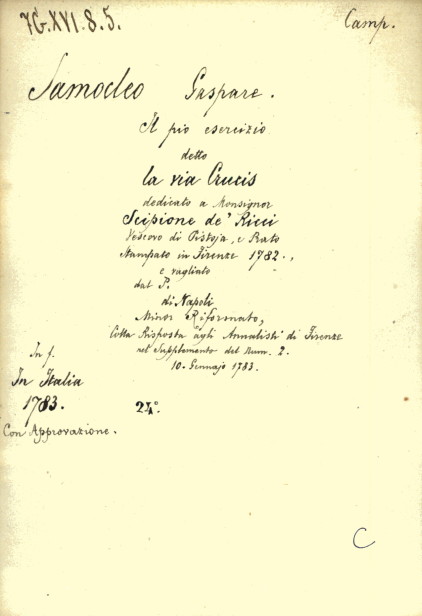 7G.XVI.8.5.
Camp.
Samocleo Gaspare.
Il pio esercizio
detto
la via Crucis
dedicato a Monsignor
Scipione de' Ricci
Vescovo di Pistoja, e Prato
Stampato in Firenze 1782.,
e vagliato
dal P.
di Napoli
Minor Riformato,
Colla Risposta agli Annalisti di Firenze
nel Supplemento del Num. 2.
10. Gennajo 1783.
In f.
In Italia
1783.
24º.
Con Approvazione.
C